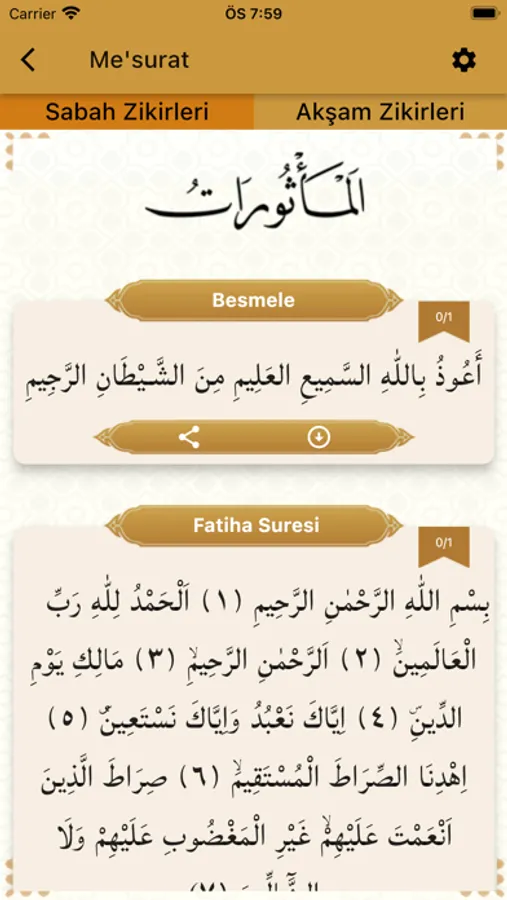 Carrier
ÖS 7:59
Me'surat
Sabah Zikirleri
Akşam Zikirleri
الْمَأْثُورَاتُ
Besmele
0/1
أَعُوذُ بِاللّٰهِ السَّمِيعِ العَلِيمِ مِنَ الشَّيْطَانِ الرَّجِيمِ
Fatiha Suresi
0/1
بِسْمِ اللّٰهِ الرَّحْمٰنِ الرَّحِيمِ (١) اَلْحَمْدُ لِلّٰهِ رَبِّ
الْعَالَمِينَۙ (٢) اَلرَّحْمٰنِ الرَّحِيمِۙ (٣) مَالِكِ يَوْمِ
الدِّينِۜ (٤) اِيَّاكَ نَعْبُدُ وَاِيَّاكَ نَسْتَعِينُۜ (٥)
اِهْدِنَا الصِّرَاطَ الْمُسْتَقِيمَۙ (٦) صِرَاطَ الَّذِينَ
اَنْعَمْتَ عَلَيْهِمْۙ غَيْرِ الْمَغْضُوبِ عَلَيْهِمْ وَلَا